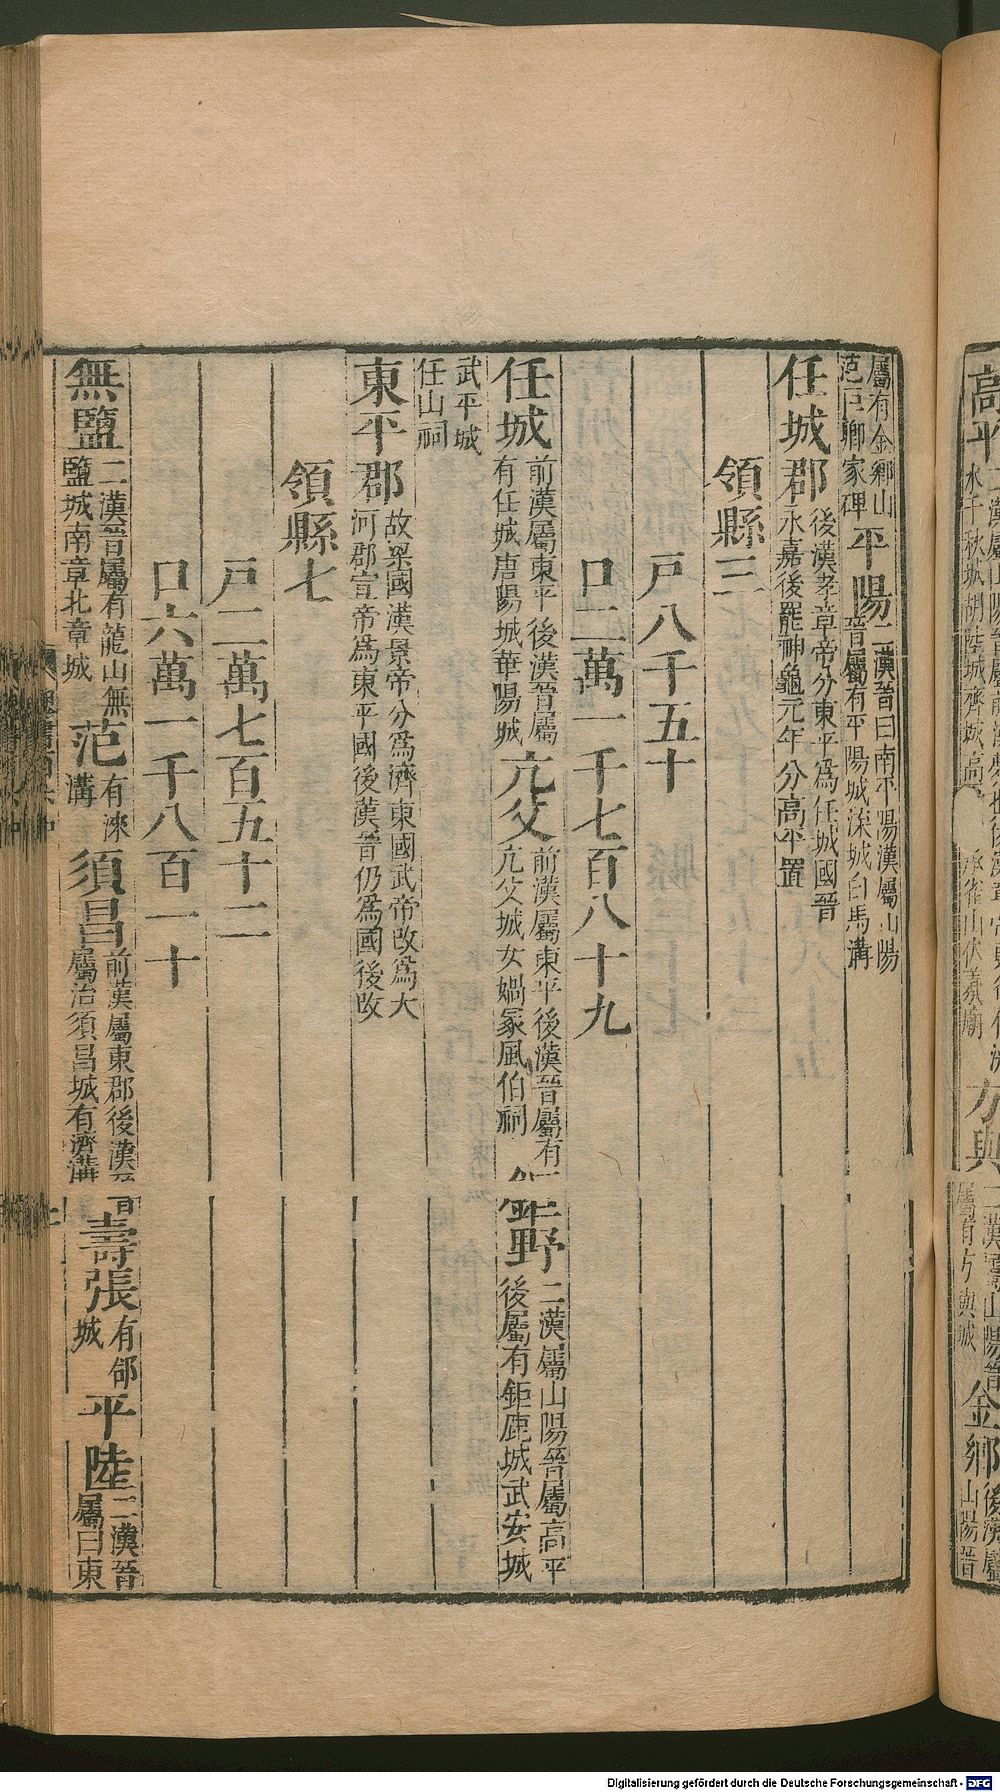 屬有金鄉山范巨卿家碑 平陽 二漢晉曰南平陽漢屬山陽晉屬有平陽城漆城白馬溝
任城郡 後漢孝章帝分東平爲任城國晉永嘉後罷神龜元年分高平置
領縣三
戸八千五十
口二萬一千七百八十九
任城 前漢屬東平後漢晉屬有任城唐陽城華陽城 亢父 前漢屬東平後漢晉屬有亢父城女媧冢風伯祠 鉅野 二漢屬山陽晉屬高平後屬有鉅鹿城武安城
武平城任山祠
東平郡 故梁國漢景帝分爲濟東國武帝改爲大河郡宣帝爲東平國後漢晉仍爲國後改
領縣七
戸二萬七百五十二
口六萬一千八百一十
無鹽 二漢晉屬有龍山無鹽城南章北章城 范 有淶溝 須昌 前漢屬東郡後漢晉屬治須昌城有濟溝 壽張 有郃城 平陸 二漢晉屬曰東
Digitalisierung gefördert durch die Deutsche Forschungsgemeinschaft - DFG